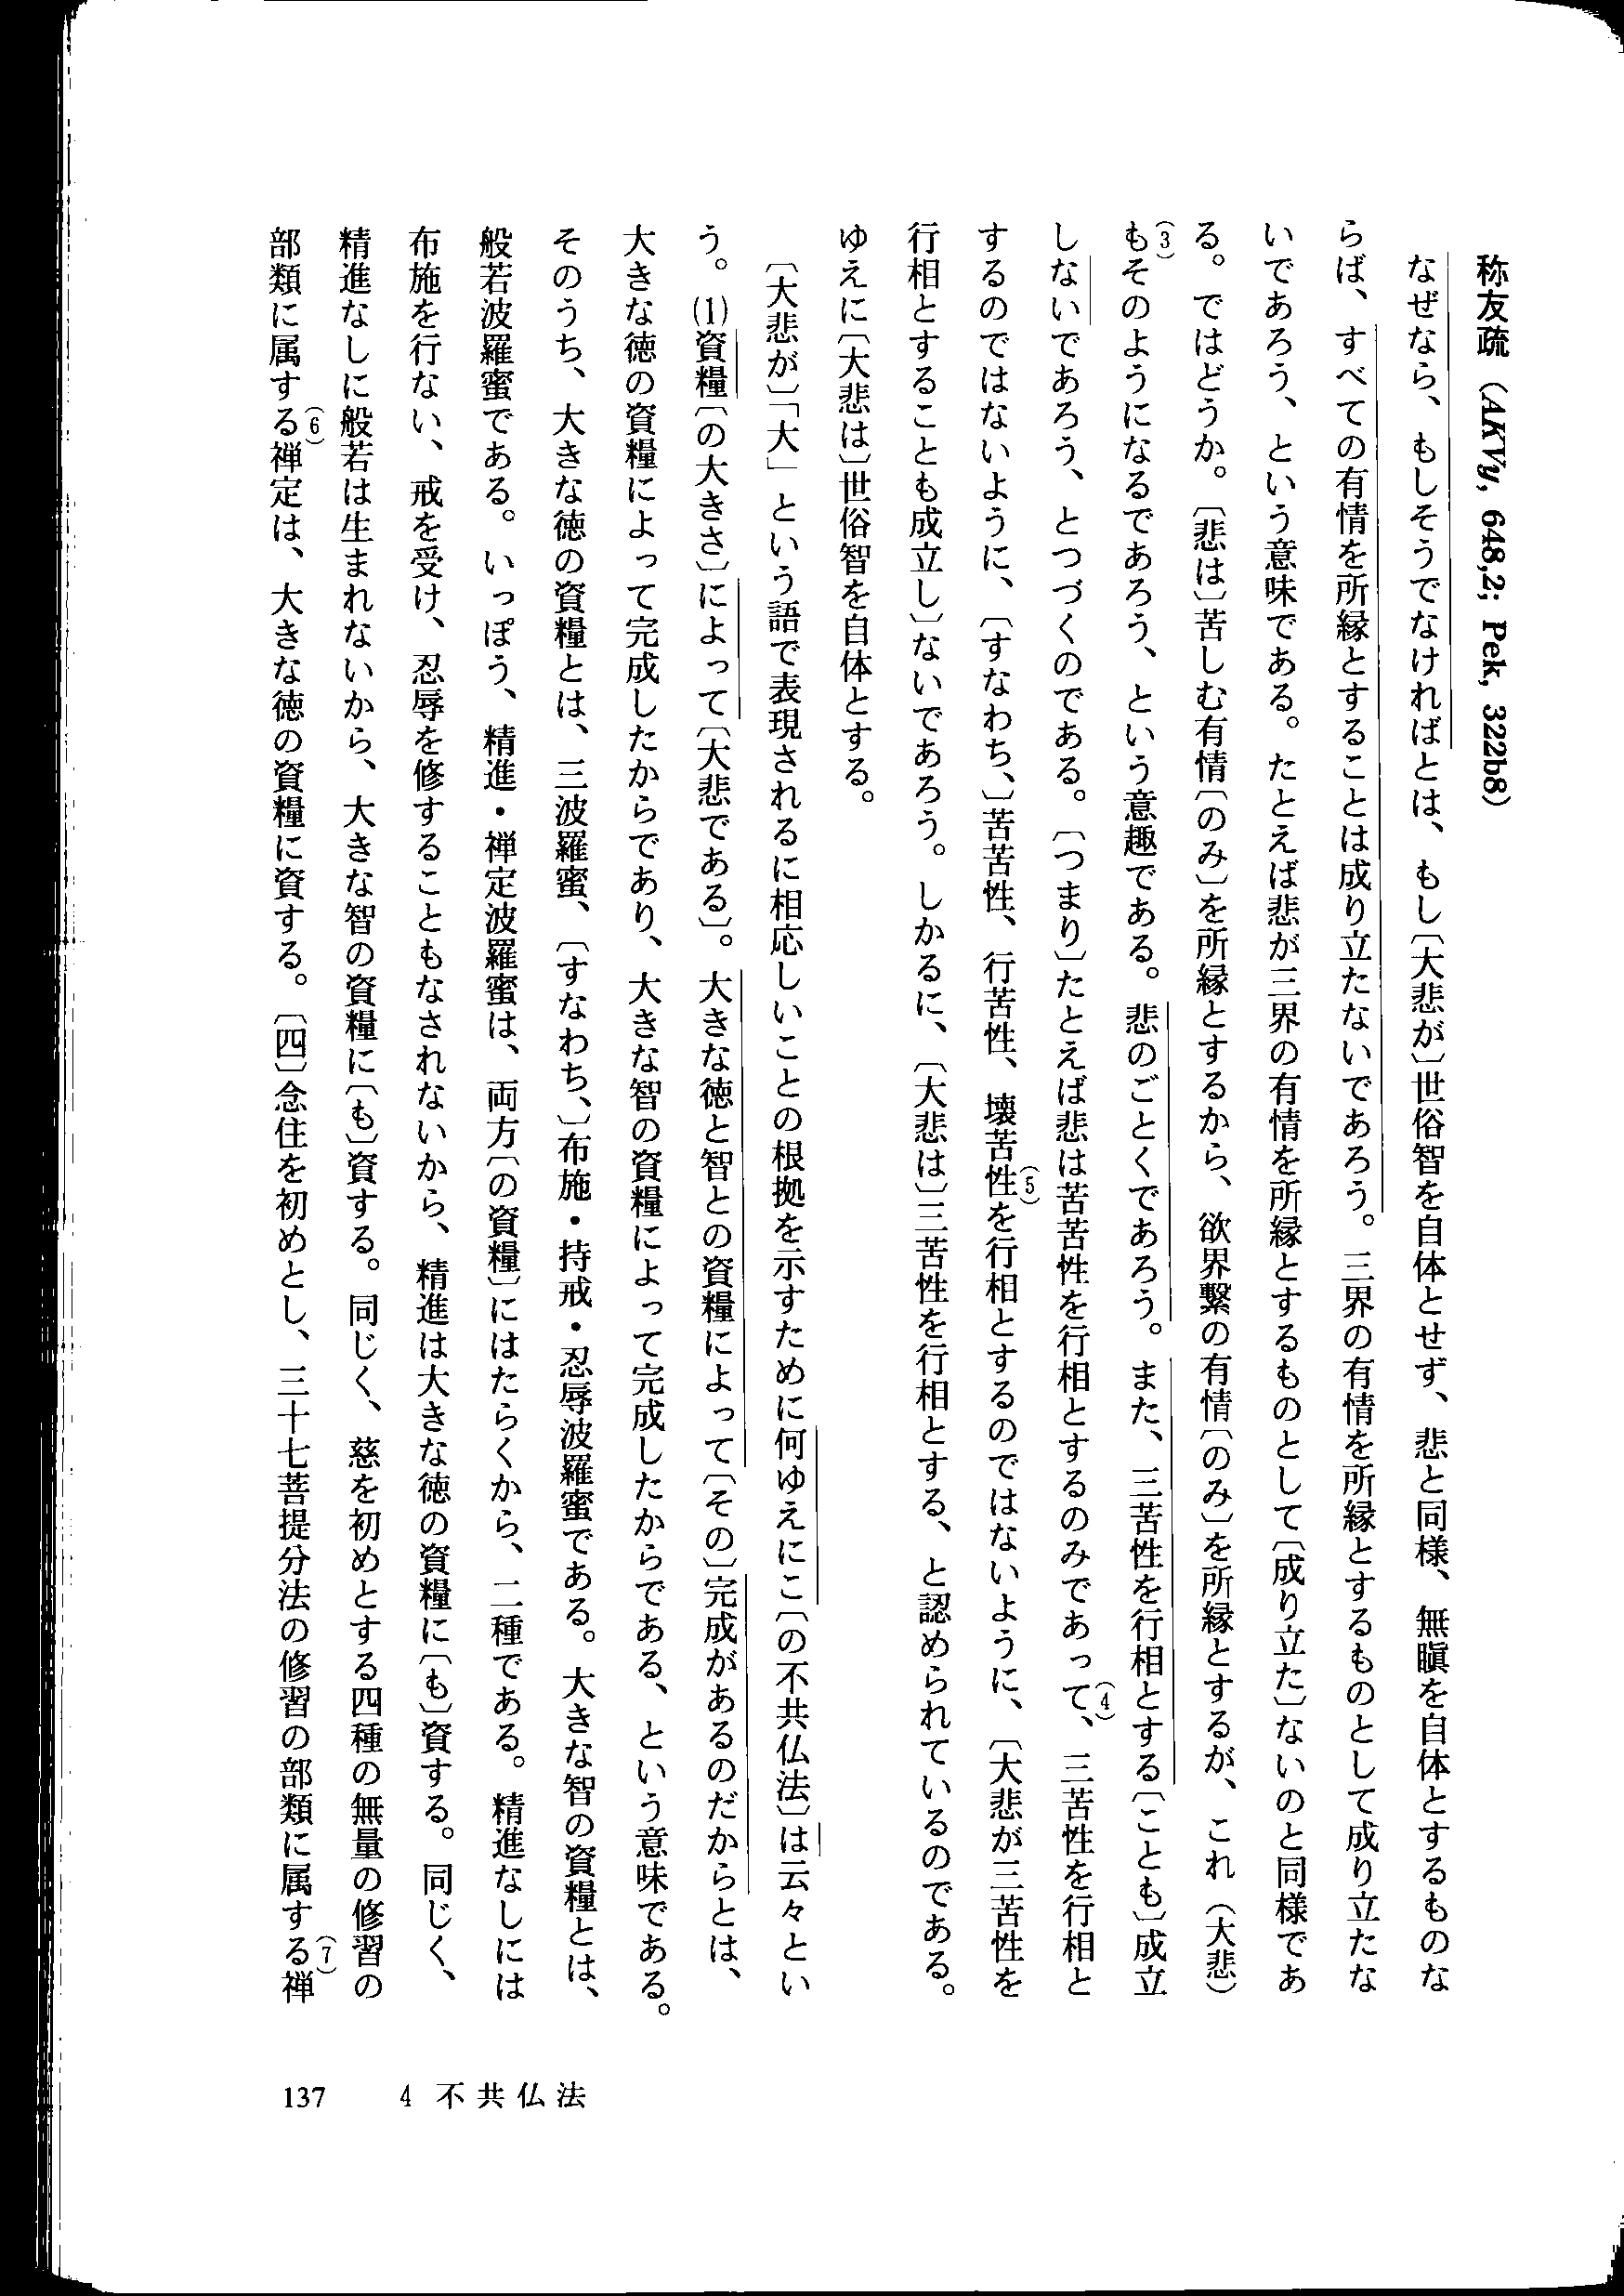 称友疏（AKVy, 648,2; Pek, 322b8）
なぜなら、もしそうでなければとは、もし〔大悲が〕世俗智を自体とせず、悲と同様、無瞋を自体とするものな
らば、すべての有情を所縁とすることは成り立たないであろう。三界の有情を所縁とするものとして成り立たな
いであろう、という意味である。たとえば悲が三界の有情を所縁とするものとして〔成り立た〕ないのと同様であ
る。ではどうか。〔悲は〕苦しむ有情〔のみ〕を所縁とするから、欲界繫の有情〔のみ〕を所縁とするが、これ（大悲）
も(3)そのようになるであろう、という意趣である。悲のごとくであろう。また、三苦性を行相とする〔ことも〕成立
しないであろう、とつづくのである。〔つまり〕たとえば悲は苦苦性を行相とするのみであって(4)、三苦性を行相と
するのではないように、〔すなわち、〕苦苦性、行苦性、壊苦性(5)を行相とするのではないように、〔大悲が三苦性を
行相とすることも成立し〕ないであろう。しかるに、〔大悲は〕三苦性を行相とする、と認められているのである。
ゆえに〔大悲は〕世俗智を自体とする。
〔大悲が〕「大」という語で表現されるに相応しいことの根拠を示すために何ゆえにこ〔の不共仏法〕は云々とい
う。(1)資糧〔の大きさ〕によって〔大悲である〕。大きな徳と智との資糧によって〔その〕完成があるのだからとは、
大きな徳の資糧によって完成したからであり、大きな智の資糧によって完成したからである、という意味である。
そのうち、大きな徳の資糧とは、三波羅蜜、〔すなわち、〕布施・持戒・忍辱波羅蜜である。大きな智の資糧とは、
般若波羅蜜である。いっぽう、精進・禅定波羅蜜は、両方〔の資糧〕にはたらくから、二種である。精進なしには
布施を行ない、戒を受け、忍辱を修することもなされないから、精進は大きな徳の資糧に〔も〕資する。同じく、
精進なしに般若は生まれないから、大きな智の資糧に〔も〕資する。同じく、慈を初めとする四種の無量の修習の
部類に属する(6)禅定は、大きな徳の資糧に資する。〔四〕念住を初めとし、三十七菩提分法の修習の部類に属する(7)禅
137　4 不共仏法